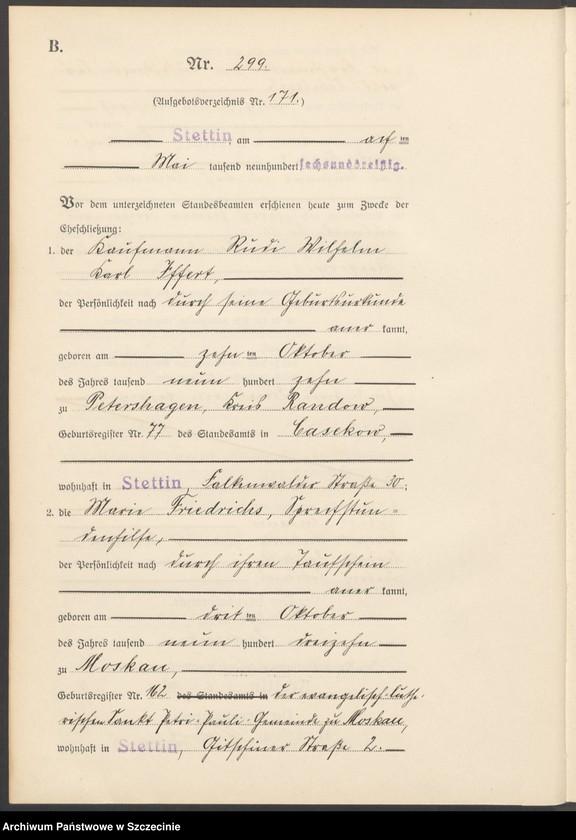 B.
Nr. 299.
(Aufgebotsverzeichnis Nr. 171.)
Stettin, am acht ten
Mai tausend neunhundert sechsunddreißig.
Vor dem unterzeichneten Standesbeamten erschienen heute zum Zwecke der
Eheschließung:
1. der Kaufmann Rudi Wilhelm
Karl Iffert,
der Persönlichkeit nach durch seine Geburtsurkunde
aner kannt,
geboren am zehn ten Oktober
des Jahres tausend neun hundert zehn
zu Petershagen, Kreis Randow,
Geburtsregister Nr. 77 des Standesamts in Casekow,
wohnhaft in Stettin, Falkenwalder Straße 30;
2. die Marie Friedrichs, Sprechstun=
denhilfe,
der Persönlichkeit nach durch ihren Taufschein
aner kannt,
geboren am drit ten Oktober
des Jahres tausend neun hundert dreizehn
zu Moskau,
Geburtsregister Nr. 162 des Standesamts in der evangelisch-luthe-
rischen Sankt Petri-Pauli-Gemeinde zu Moskau,
wohnhaft in Stettin, Gitschiner Straße 2.
Archiwum Państwowe w Szczecinie